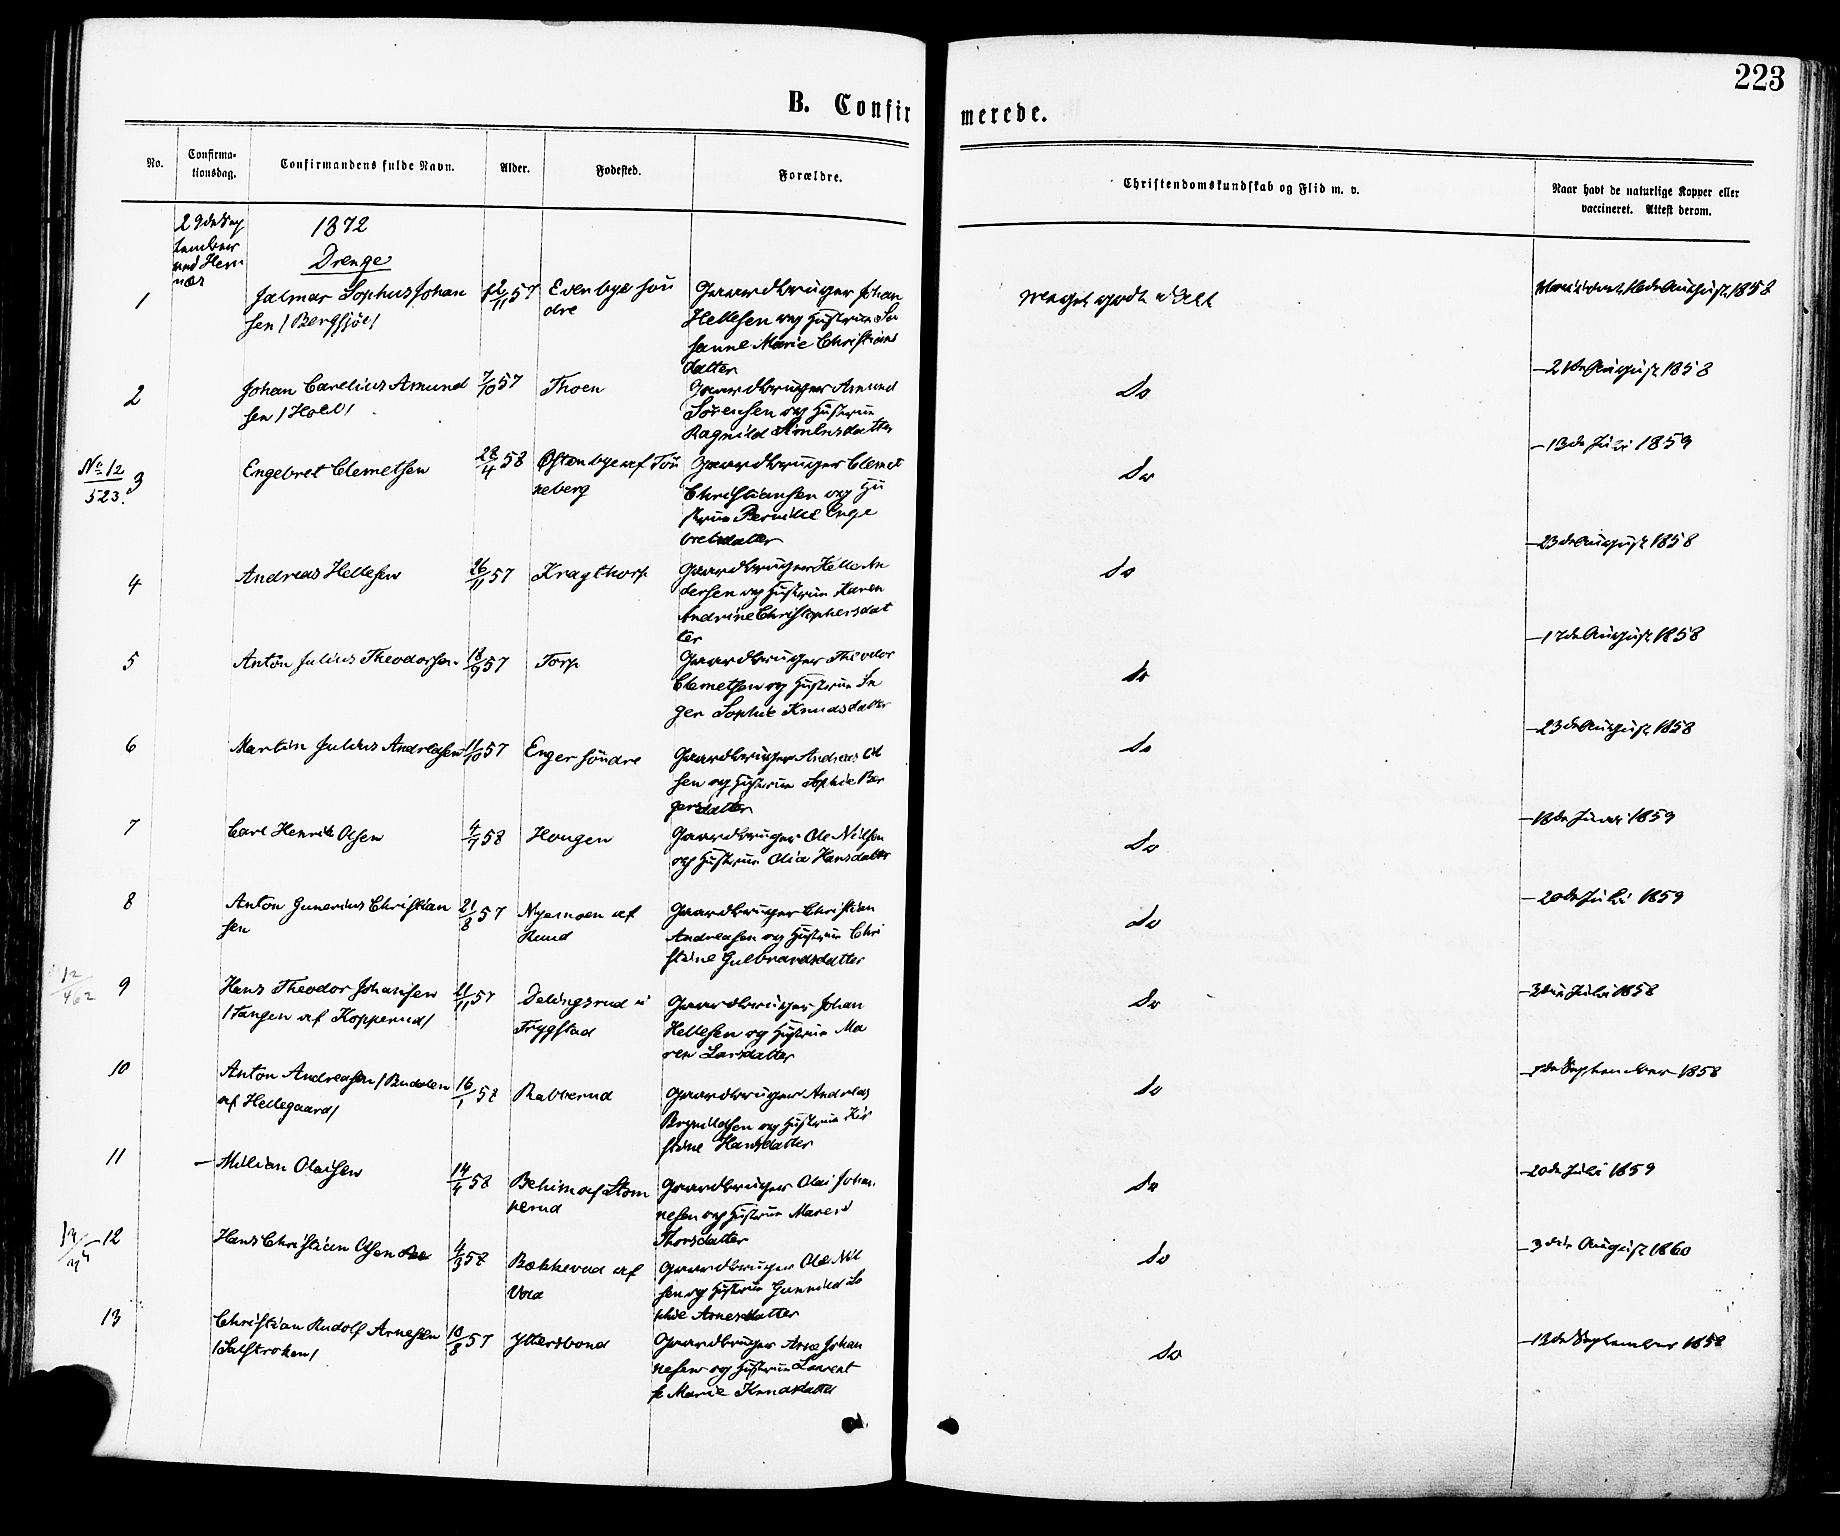 223
B. Confirmerede.
No.
Confirma-
tionsdag.
Confirmandens fulde Navn.
Alder.
Fødested.
Forældre.
Christendomskundskab og Flid m. v.
Naar havt de naturlige Kopper eller
vaccineret. Attest derom.
29de Sep
tember
ved Hem
næs
1872
Drenge
1
Jalmar Sophus Johan
sen / Bergsjøe /
12/11 57
Evenbye søn
dre
Gaardbruger Johan
Hellesen og Hustrue Su
sanne Marie Christians
datter
Meget godt
August 1858
2
Johan Carelius Amund
sen / Holel /
7/10 57
Thoen
Gaardbruger Amund
Sørensen og Hustrue
Ragnild
Do
21de August 1858
No 12
523.
3
Engebret Clemetsen
28/4 58
Østenbye af Tøn
neberg
Gaardbruger Clemet
Christiansen og Hu
strue Pernille Enge
bretsdatter
Do
13de Juli 1859
4
Andreas Hellesen
26/11 57
Kragthorp
Gaardbruger Helle An
dersen og Hustrue Karen
Andrine Christophersdat
ter
Do
23de August 1858
5
Anton Julius Theodorsen
18/9 57
Torp
Gaardbruger Theodor
Clemetsen og Hustrue In
ger Sophie Knudsdatter
Do
17de August 1858
6
Martin Julius Andreasen
11/10 57
Enger søndre
Gaardbruger Andreas Ol
sen og Hustrue Sophie Bør
gersdatter
Do
23de August 1858
7
Carl Henrik Olsen
4/7 58
Hougen
Gaardbruger Ole Nilsen
og Hustrue Olia Hansdatter
Do
18de 1859
8
Anton Gunerius Christian
sen
21/8 57
Nyemoen af
Ruud
Gaardbruger Christian
Andreasen og Hustrue Chri
stine Gulbrandsdatter
Do
20de Juli 1859
12
462
9
Hans Theodor Johansen
/ Tangen af Kopperud /
21/11 57
Delingsrud i
Trygstad
Gaardbruger Johan
Hellesen og Hustrue Ma
ren Larsdatter
Do
3die Juli 1858
10
Anton Andreasen / Budalen
af Hellegaard /
16/1 58
Rabberud
Gaardbruger Andreas
Brynildsen og Hustrue Kir
stine Hansdatter
Do
September 1858
11
Milian Olaisen
14/4 58
Behim af Stom
perud
Gaardbruger Olai Johan
nesen og Hustrue Maren
Thorsdatter
Do
20de Juli 1859
12
Hans Christian Olsen
4/3 58
Bækkevad af
Vold
Gaardbruger Ole Nil
sen og Hustrue Gunnild So
phie Arnesdatter
Do
3die August 1860
13
Christian Rudolf Arnesen
/ Sulstroken /
10/8 57
Ytterstvond
Gaardbruger Arne Johan
nesen og Hustrue Laurent
se Marie Knudsdatter
Do
13de September 1858